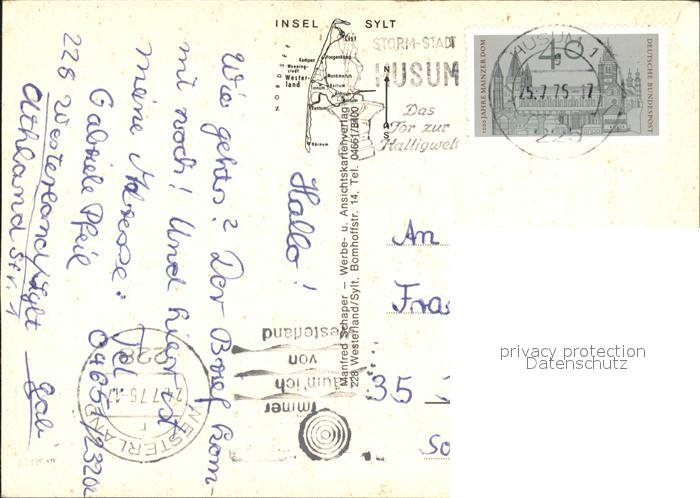 INSEL SYLT
NORDSEE
List
Kampen
Wenningstedt
Westerland
Munkmarsch
Keitum
Hörnum
N
S
STORM-STADT
HUSUM
Das
Tor zur
Halligwelt
HUSUM 1
25.7.75-17
225
40
1000 JAHRE MAINZER DOM
DEUTSCHE BUNDESPOST
Manfred Schaper – Werbe- u. Ansichtskartenverlag
228 Westerland/Sylt, Bomhoffstr. 14, Tel. 04651/
Hallo!
Wie gehts? Der Brief kom-
mt noch! Und hier ist
meine Adresse:
Gabriele Pfeil
228 Westerland/Sylt
Str. 1
Tel. 04651/2320
Gabi
An
Fra
35
So
Immer
träum' ich
von
Westerland
228
24.7.75
WESTERLAND
privacy protection
Datenschutz